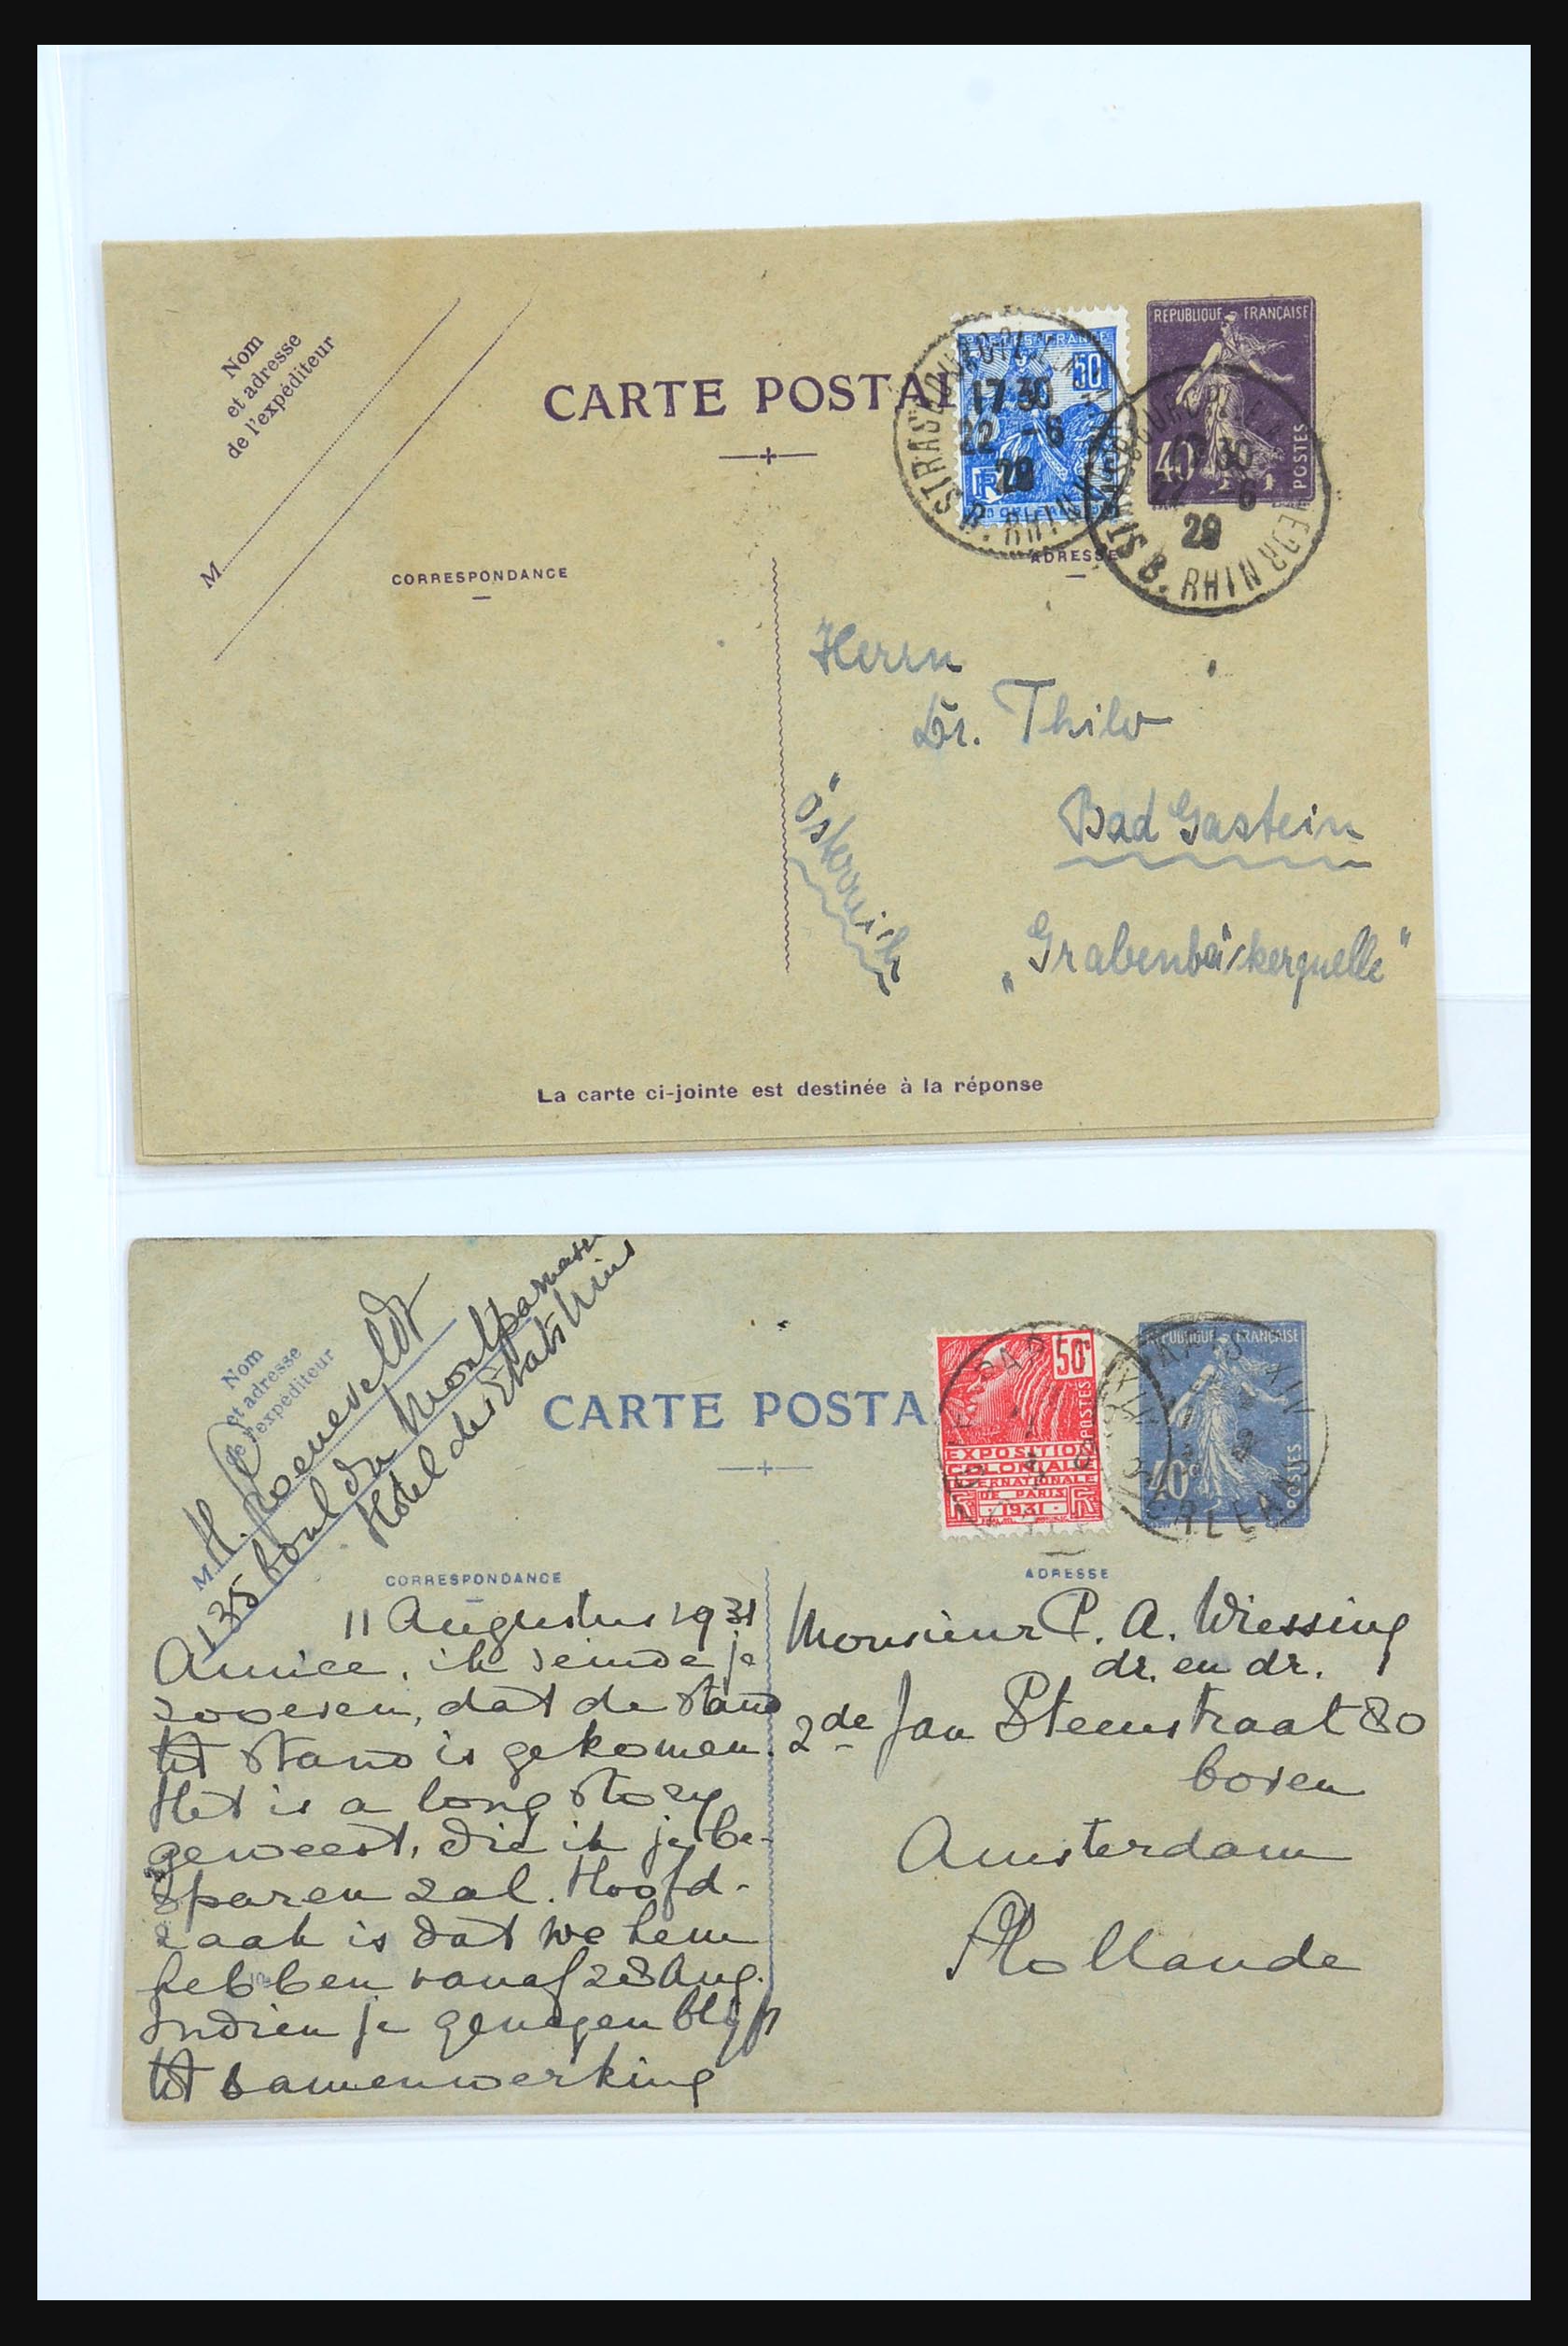 Nom
et adresse
de l'expéditeur
M
CARTE POSTAL
POSTES FRANCE
50
ORLEANS
REPUBLIQUE FRANÇAISE
40c
POSTES
STRASBOURG
17 30
22 -6
29
B. RHIN
17 30
22 -6
29
B. RHIN
CORRESPONDANCE
ADRESSE
Herrn
Dr. Thilo
Bad Gastein
"Grabenbäckerquelle"
Österreich
La carte ci-jointe est destinée à la réponse
Nom
et adresse
de l'expéditeur
M H. Roeneveldt
135 boul du Montparnasse
Hotel des Etats Unis
CARTE POSTA
50c
POSTES
EXPOSITION
COLONIALE
INTERNATIONALE
DE PARIS
1931
REPUBLIQUE FRANÇAISE
40c
POSTES
PARIS XIV
CORRESPONDANCE
ADRESSE
11 Augustus 1931
Amice, ik seinde je
zooeven, dat de stand
tot stand is gekomen.
Het is a long story
geweest, die ik je be-
sparen zal. Hoofd-
zaak is dat we hem
hebben vanaf 28 Aug.
Indien je genegen blijft
tot samenwerking
Monsieur P. A. Wiessing
dr. en dr.
2de Jan Steenstraat 80
boven
Amsterdam
Hollande